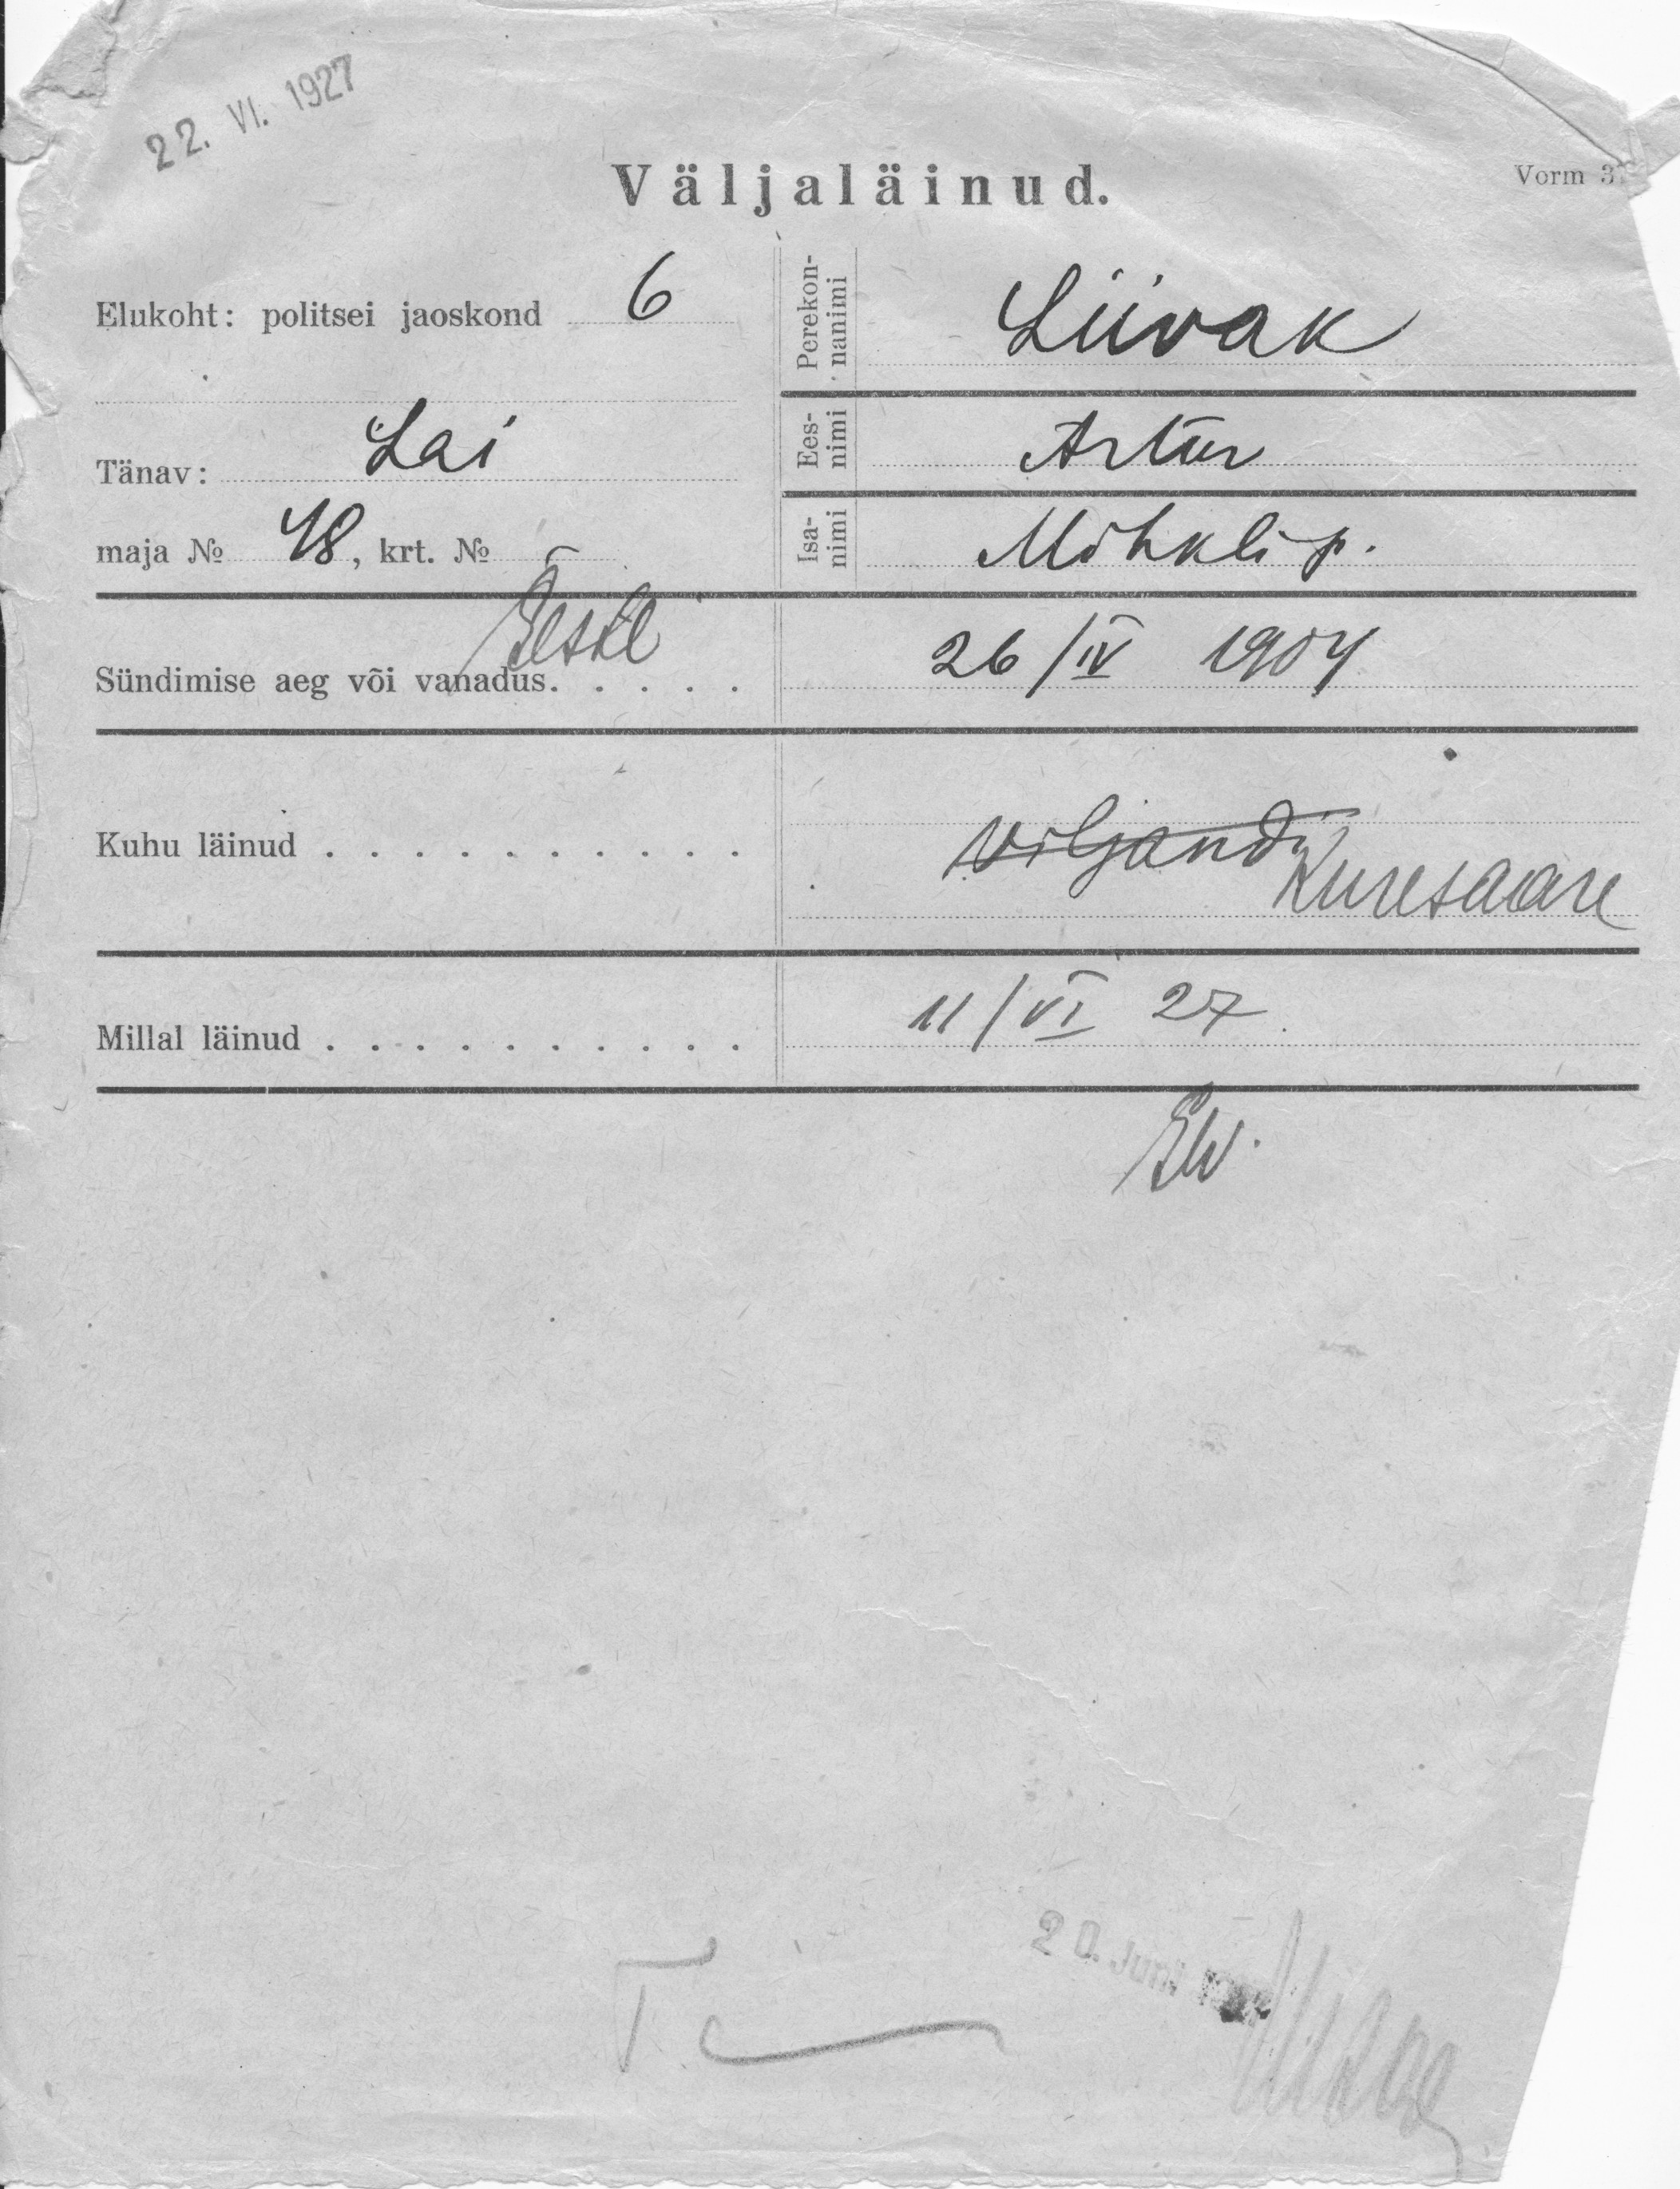 22. VI. 1927
Väljaläinud.
Vorm 3
Elukoht: politsei jaoskond 6
Perekonnanimi Liivak
Tänav: Lai
Eesnimi Artur
maja № 48, krt. №
Isanimi Mihkli p.
Eesti
Sündimise aeg või vanadus. . . . . 26/IV 1904
Kuhu läinud . . . . . . . . . . . Viljandi Kuresaare
Millal läinud . . . . . . . . . . . 11/VI 27.
20. Juni
T